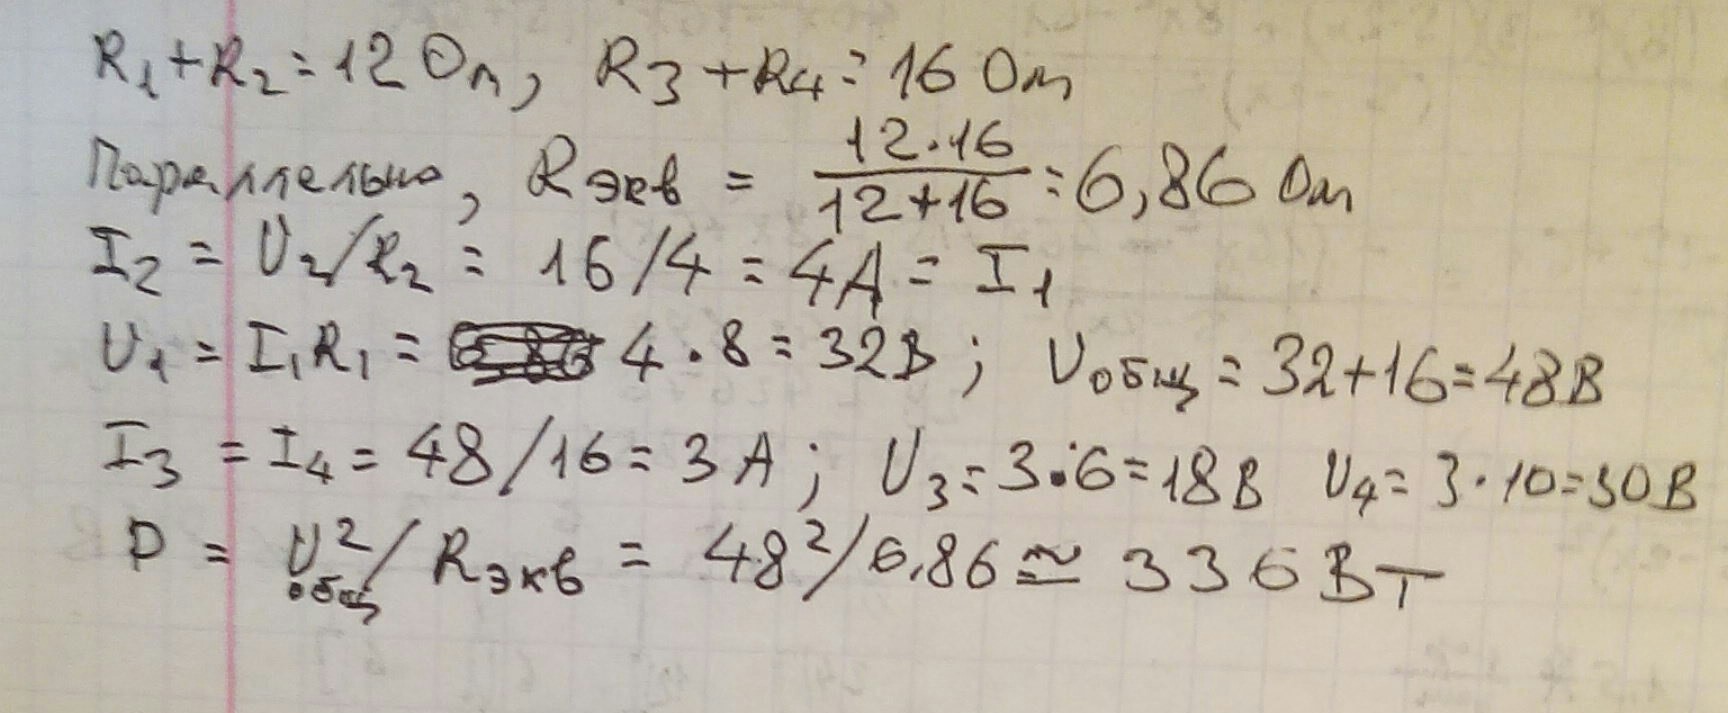 R₁+R₂=12 Ом, R₃+R₄=16 Ом
Параллельно, Rэкв = 12·16/12+16 = 6,86 Ом
I₂ = U₂/R₂ = 16/4 = 4A = I₁
U₁ = I₁R₁ = 4·8=32В; Uобщ = 32+16=48В
I₃ = I₄ = 48/16 = 3 A; U₃=3·6=18В U₄=3·10=30В
P = U²общ/Rэкв = 48²/6,86 ≅ 336 Вт